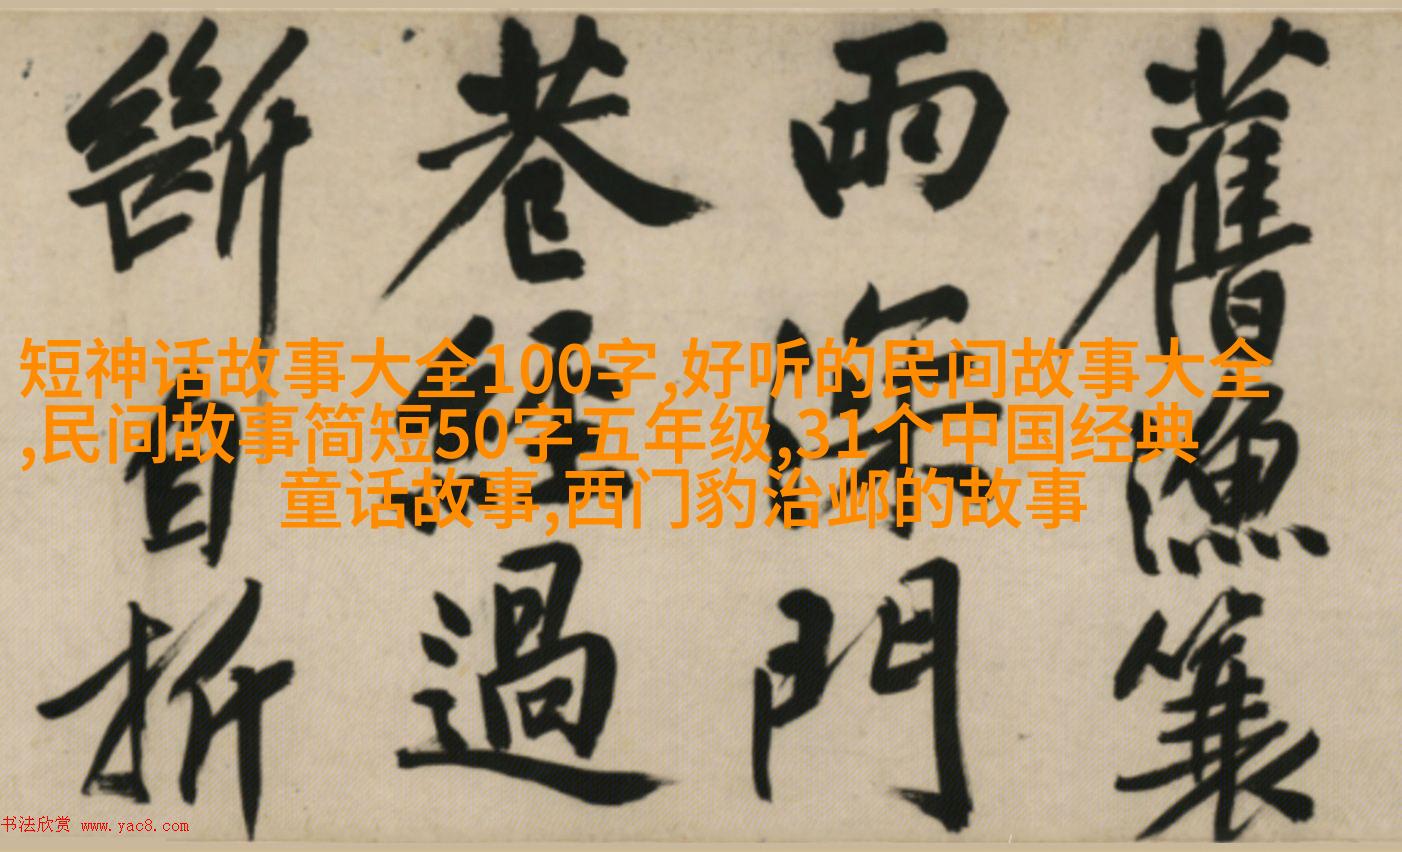 舊漁蓑
雨深門
巷經過
斷自折
短神话故事大全100字,好听的民间故事大全
,民间故事简短50字五年级,31个中国经典
童话故事,西门豹治邺的故事
书法欣赏 www.yac8.com